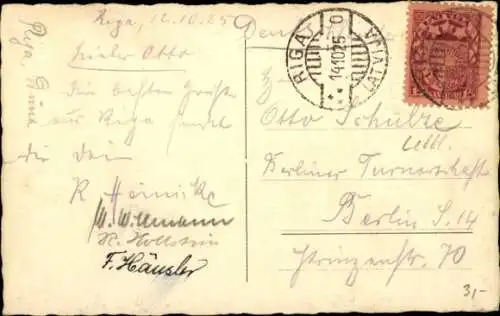 Riga, 12.10.25
Lieber Otto
Die besten Grüße
aus Riga sendet
dir dein
R. Heinicke
W. Willmann
K. Hollstein
F. Häusler
Riga,
RIGA
14.10.25
LATVIJA
Otto Schultze
Berliner Turnerschaft
Berlin S. 14
Prinzenstr. 70
31,-